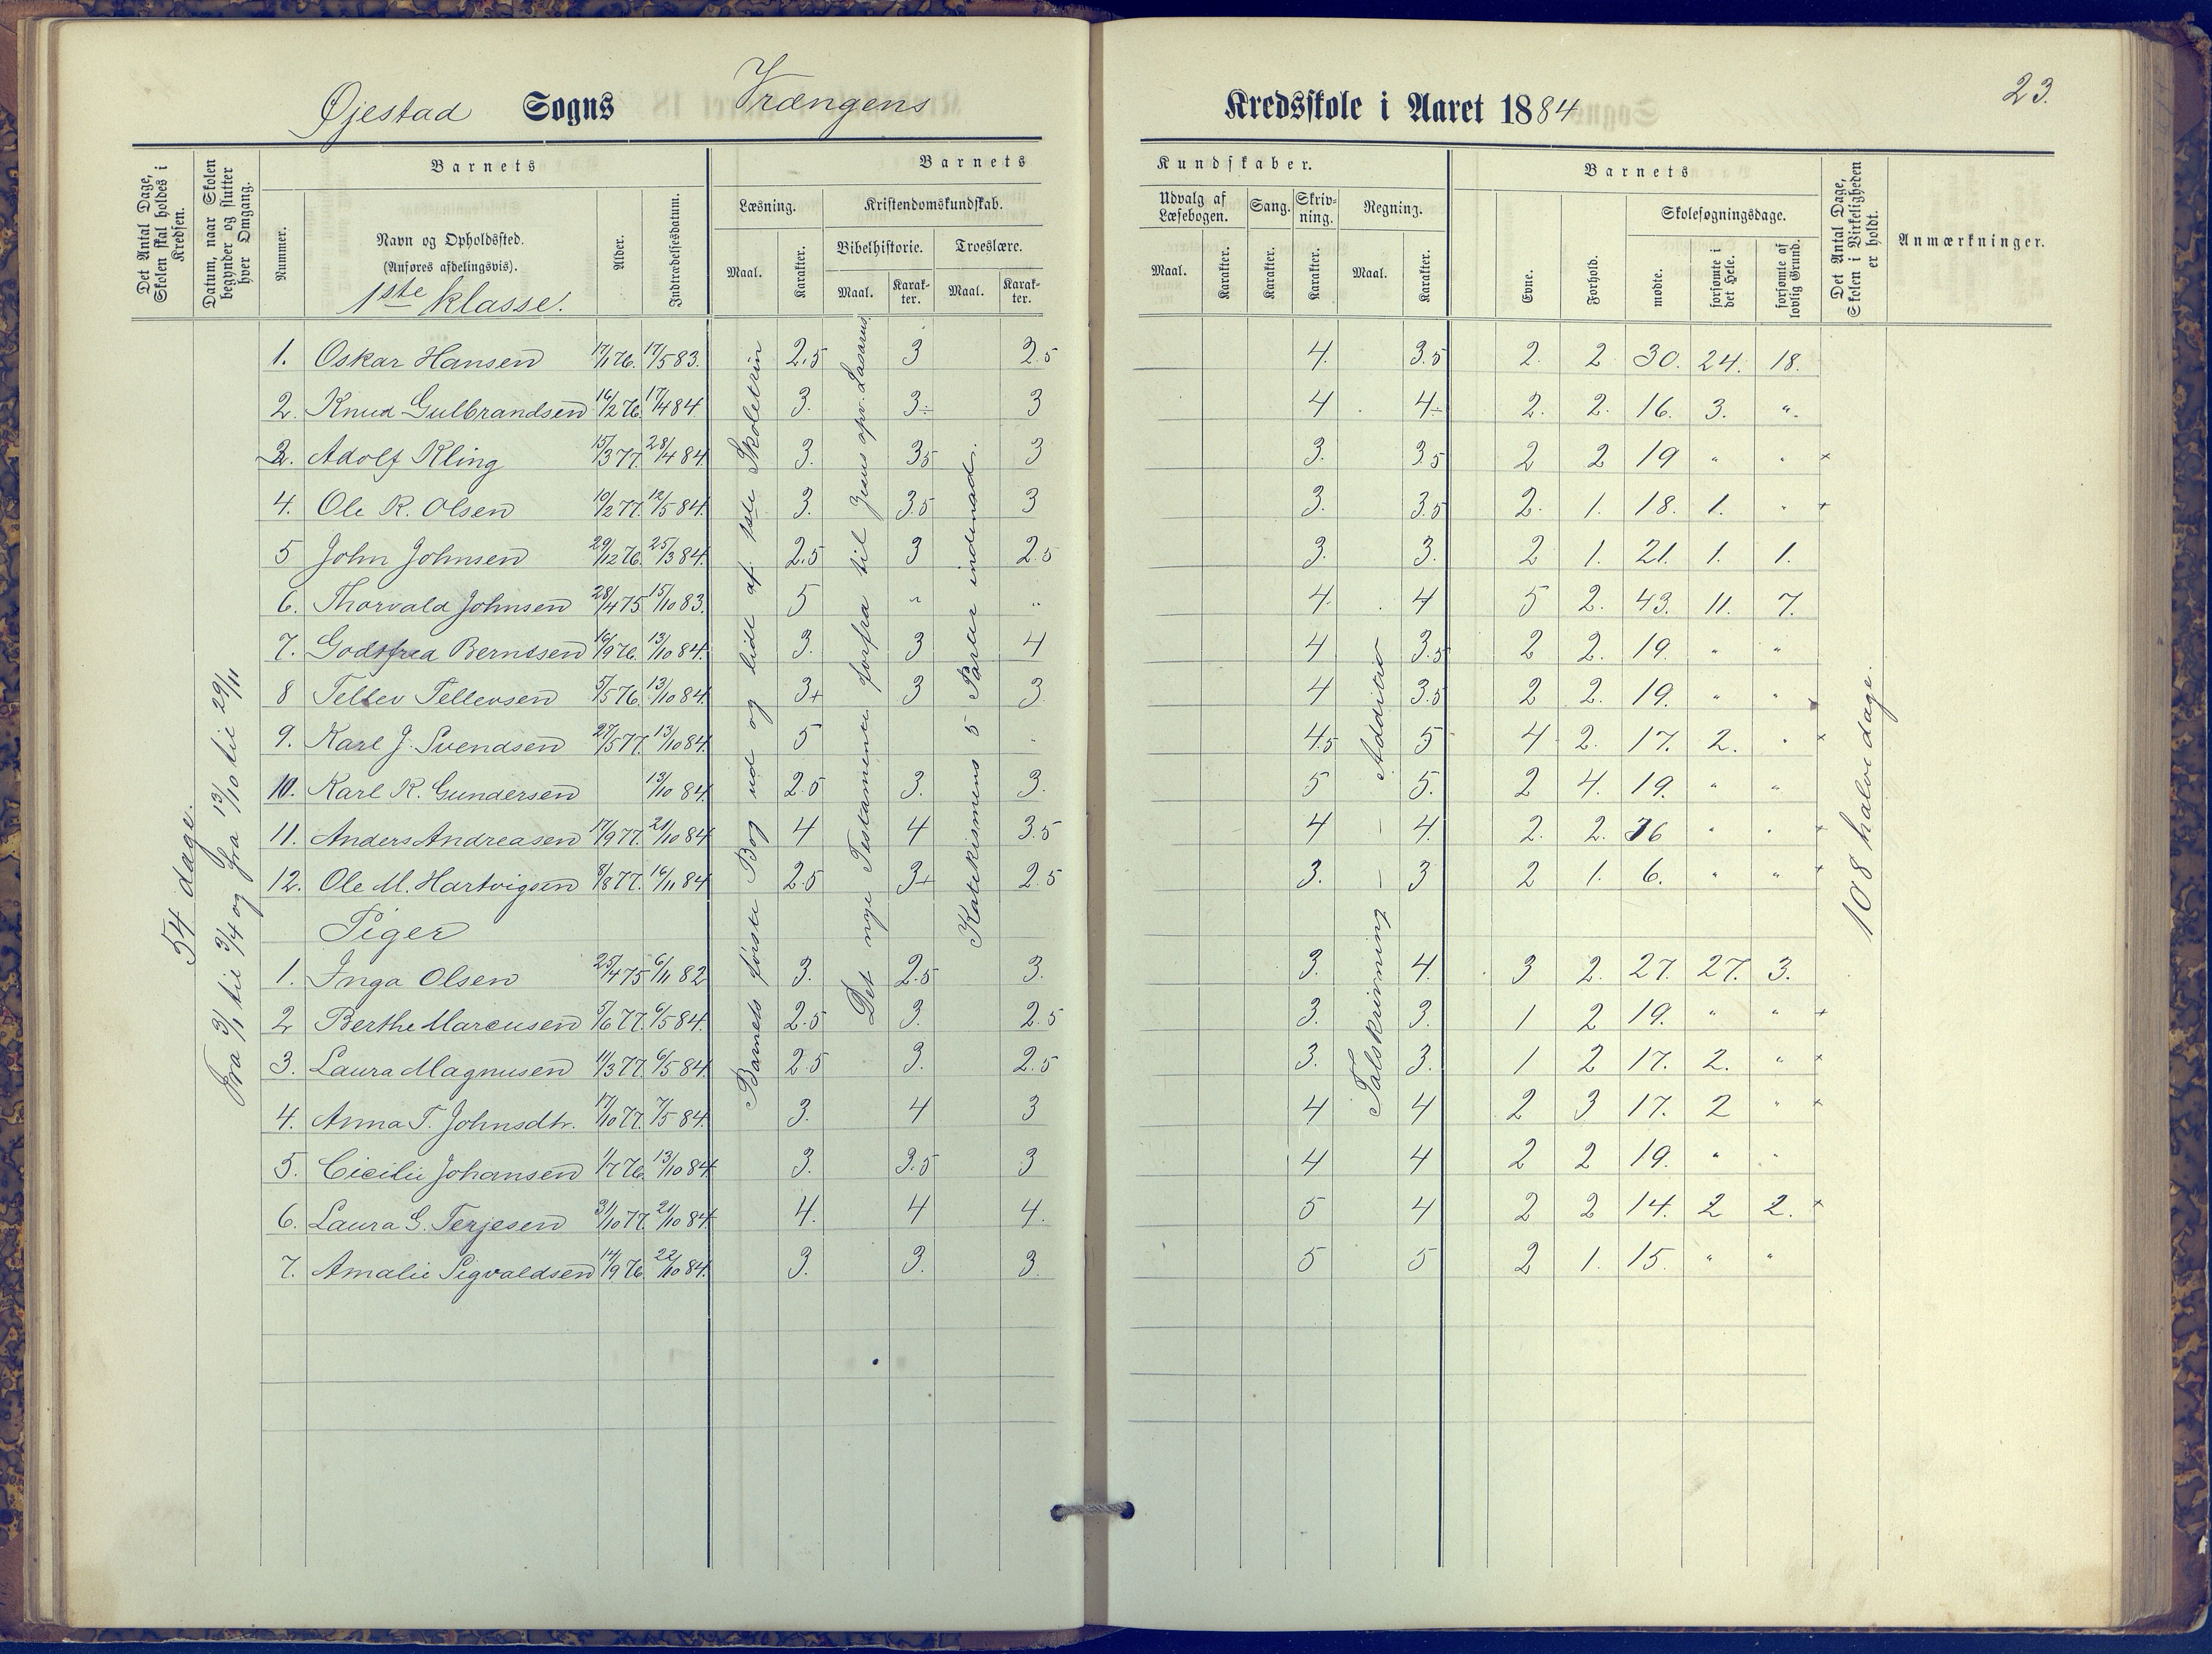 Øjestad Sogns Vrængens Kredsskole i Aaret 1884
23.
Det Antal Dage, Skolen skal holdes i Kredsen.
Datum, naar Skolen begynder og slutter hver Omgang.
Barnets
Nummer.
Navn og Opholdssted.
(Anføres afdelingsvis).
1ste klasse.
Alder.
Indtrædelsesdatum.
Barnets Kundskaber.
Læsning.
Maal.
Karakter.
Kristendomskundskab.
Bibelhistorie.
Maal.
Karakter.
Troeslære.
Maal.
Karakter.
Udvalg af Læsebogen.
Maal.
Karakter.
Sang.
Karakter.
Skrivning.
Karakter.
Regning.
Maal.
Karakter.
Barnets
Evne.
Forhold.
Skolesøgningsdage.
mødte.
forsømte i det Hele.
forsømte af lovlig Grund.
Det Antal Dage, Skolen i Virkeligheden er holdt.
Anmærkninger.
54 dage.
Fra 3/1 til 3/4 og fra 13/10 til 29/11
Barnets første Bog ud og lidt af 1ste Skoletrin
Det nye Testamente forfra til Jesus opv. Lasarus
Katekismens 5 Parter indenad.
Talskrivning - - Addition
108 halve dage.
1. Oskar Hansen 17/1 76. 17/5 83. 2.5 3 2.5 4. 3.5 2. 2 30. 24. 18.
2. Knud Gulbrandsen 16/2 76. 17/4 84 3. 3÷ 3 4 4÷ 2. 2. 16. 3. "
3. Adolf Kling 15/3 77. 28/4 84. 3. 35 3 3. 3.5 2 2 19 " " ×
4. Ole R. Olsen 10/2 77. 12/5 84. 3. 3.5 3 3. 3.5 2. 1. 18. 1. " +
5 John Johnsen 29/12 76. 25/3 84. 2.5 3 2.5 3. 3. 2 1. 21. 1. 1.
6. Thorvald Johnsen 28/4 75 15/10 83. 5 " " 4. 4 5 2. 43. 11. 7.
7. Godtfred Berntsen 16/9 76. 13/10 84. 3. 3 4 4 3.5 2 2. 19. " "
8 Tellev Tellevsen 5/5 76. 13/10 84. 3+ 3 3. 4 3.5 2 2. 19. " "
9. Karl J. Svendsen 27/5 77. 13/10 84. 5 4.5 5 4 2. 17. 2. " ×
10. Karl K. Gundersen 13/10 84. 2.5 3. 3. 5 5. 2 4. 19. " "
11. Anders Andreasen 17/9 77. 21/10 84 4 4 3.5 4 4. 2. 2. 16 " " +
12. Ole M. Hartvigsen 8/8 77. 16/11 84 2.5 3+ 2.5 3. 3 2 1. 6. " " +
Piger
1. Inga Olsen 25/4 75 6/11 82 3. 2.5 3. 3. 4. 3 2. 27. 27. 3.
2 Berthe Marcusen 5/6 77. 6/5 84. 2.5 3. 2.5 3. 3. 1 2 19. " " +
3. Laura Magnusen 11/3 77. 6/5 84. 2.5 3. 2.5 3. 3. 1 2 17. 2. " +
4. Anna T. Johnsdtr. 17/10 77. 7/5 84. 3. 4 3 4 4 2 3 17. 2 " ×
5. Cicilie Johansen 1/7 76. 13/10 84 3. 3.5 3 4 4 2 2 19. " "
6. Laura G. Terjesen 31/10 77. 21/10 84 4. 4 4. 5 4 2 2 14. 2 2. +
7. Amalie Sigvaldsen 14/9 76. 22/10 84. 3. 3. 3. 5 5 2 1. 15. " "